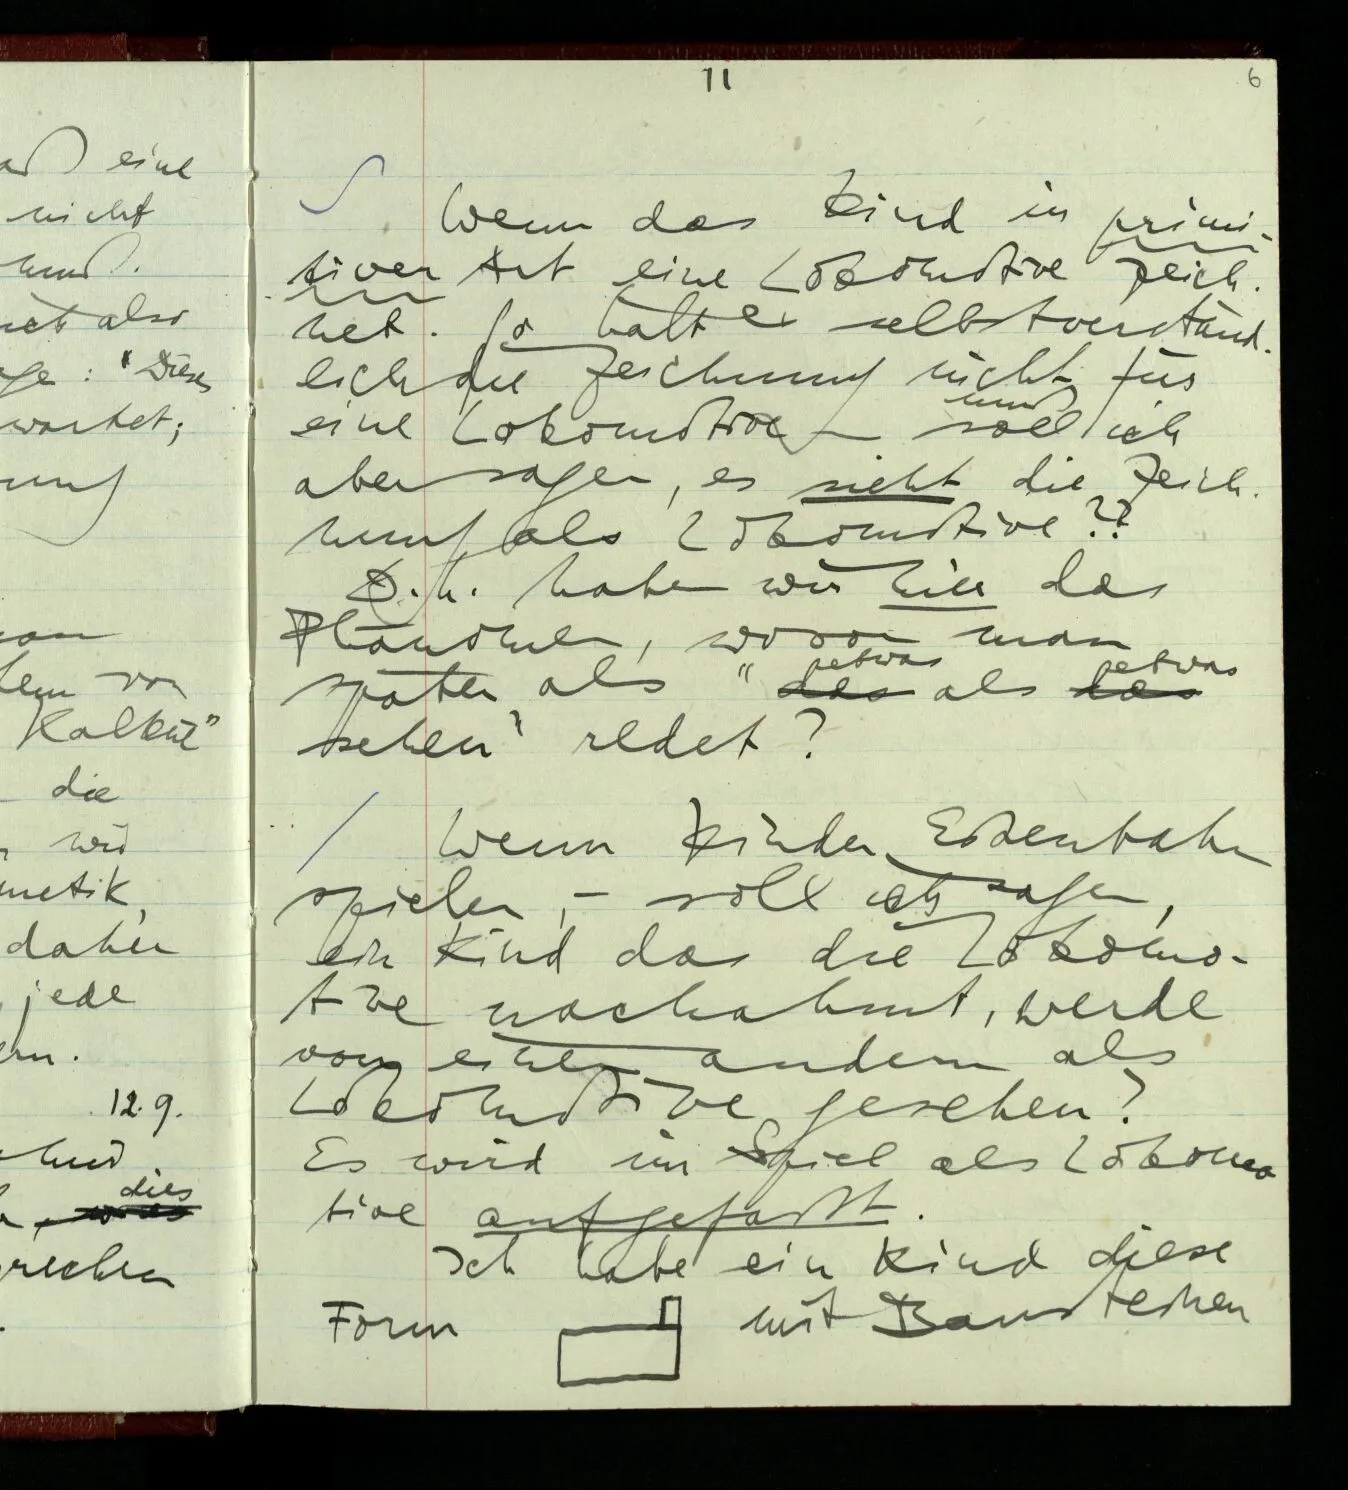 11
6
eine
nicht
also
: "Dieses
wartet;
von
Kalkül"
die
wird
metik,
daher
jede
12.9.
dies
Wenn das Kind in primi-
tiver Art eine Lokomotive zeich-
net. So hält er selbstverständ-
lich die Zeichnung nicht für
muß
eine Lokomotive – soll ich
aber sagen, es sieht die Zeich-
nung als Lokomotive??
D.h. haben wir hier das
Phänomen, wovon man
etwas etwas
später als "das als das
sehen" redet?
Wenn Kinder Eisenbahn
spielen, – soll ich sagen,
ein Kind das die Lokomo-
tive nachahmt, werde
von einem andern als
Lokomotive gesehen?
Es wird im Spiel als Lokomo
tive aufgefaßt.
Ich habe ein Kind diese
Form mit Bausteinen